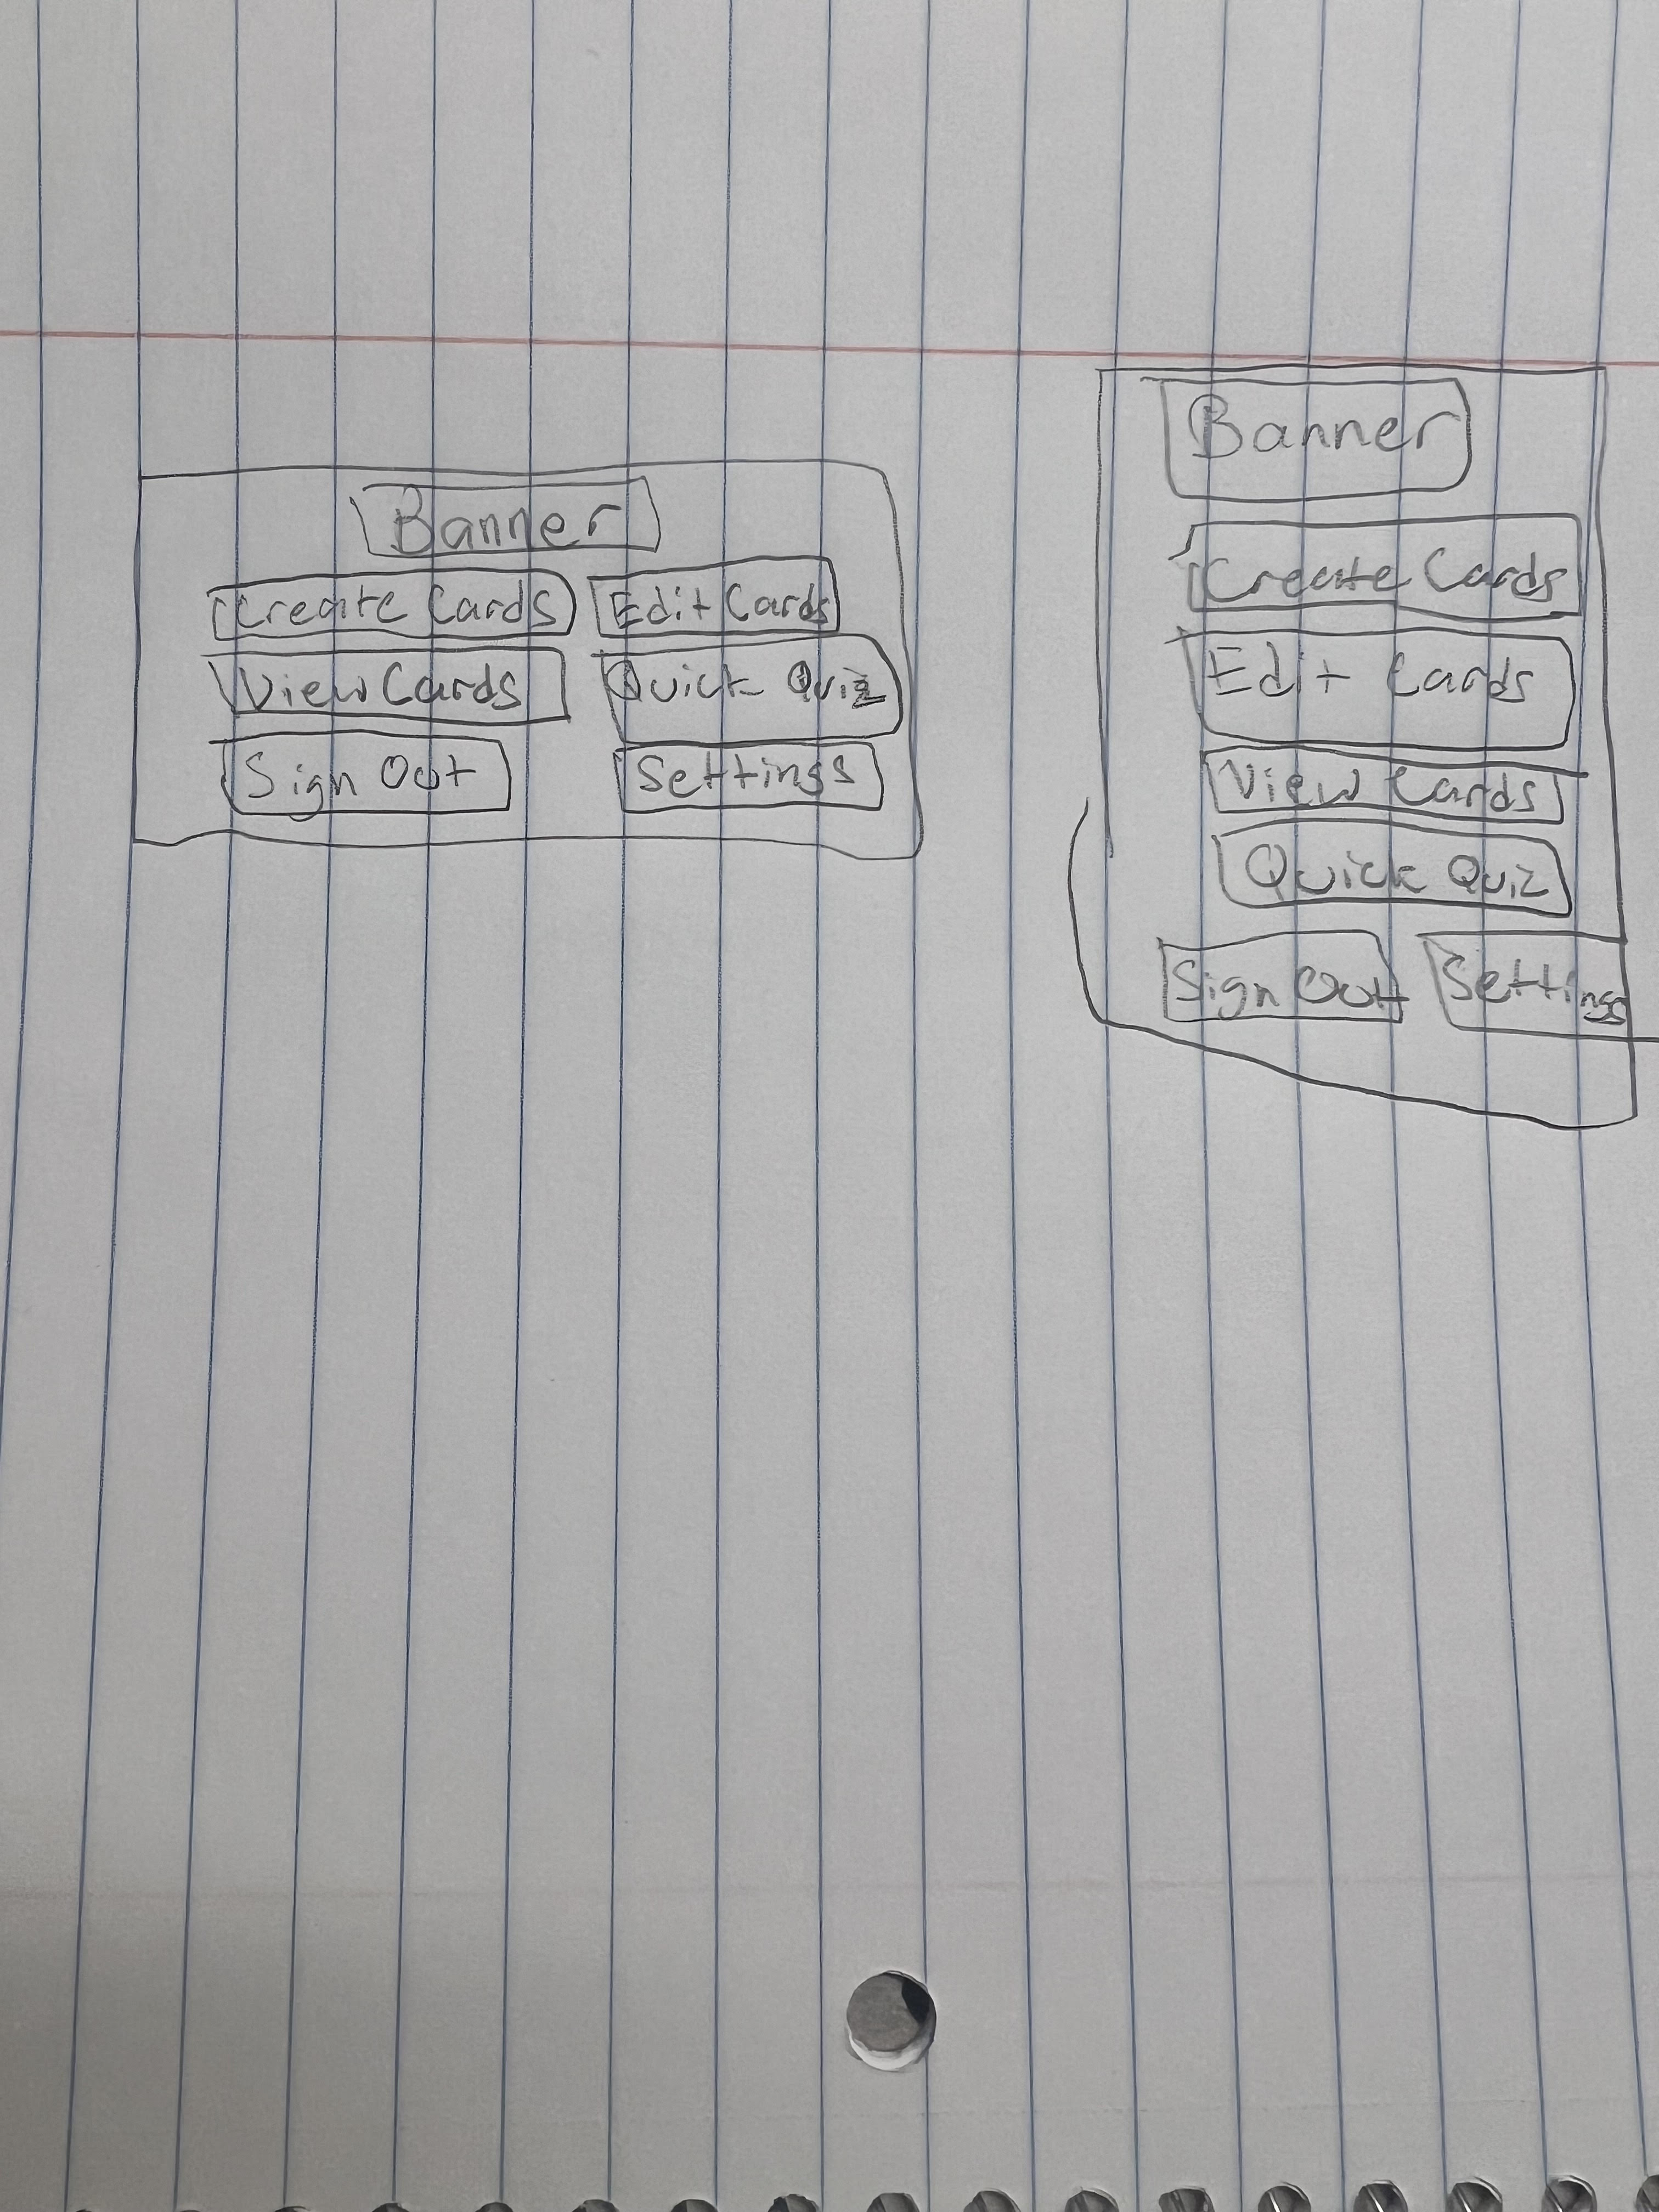 Banner
Create Cards Edit Cards
View Cards Quick Quiz
Sign Out Settings
Banner
Create Cards
Edit Cards
View Cards
Quick Quiz
Sign Out Settings